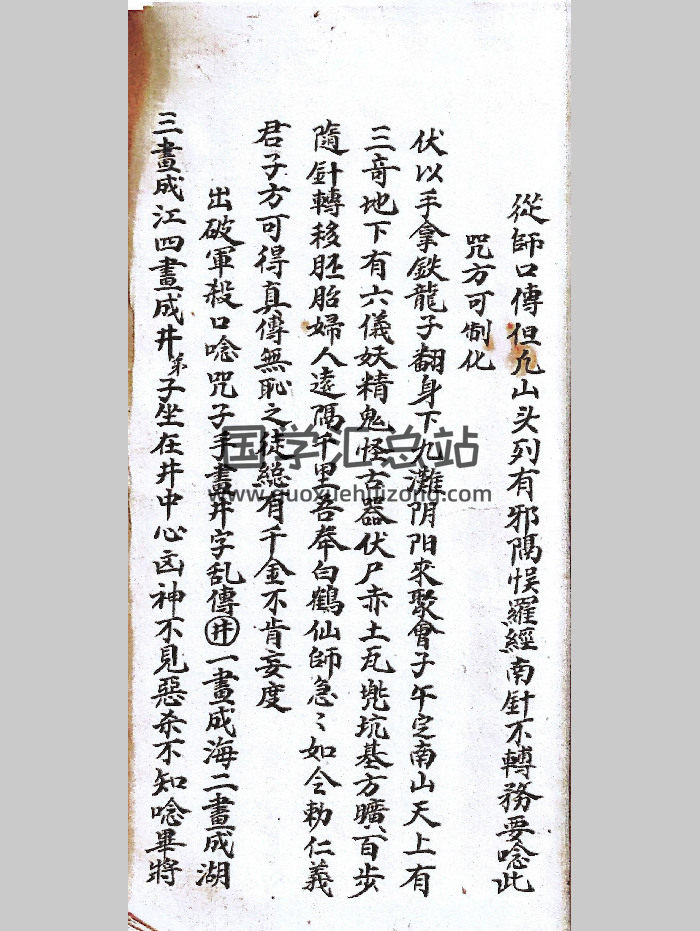 從師口傳但凢山头列有邪隅悮羅經南針不轉務要唸此
咒方可制化
伏以手拿鉄龍子翻身下九灘阴阳來聚會子午定南山天上有
三奇地下有六儀妖精鬼怪古器伏尸赤土瓦兠坑基方曠百步
隨針轉移胚胎婦人遠隅千里吾奉白鶴仙師急〻如令勅仁義
君子方可得真傳無恥之徒縂有千金不肯妄度
出破軍殺口唸咒子手畫井字乱傳井一畫成海二畫成湖
三畫成江四畫成井弟子坐在井中心凶神不見惡杀不知唸畢將
国学汇总站
www.guoxuehuizong.com